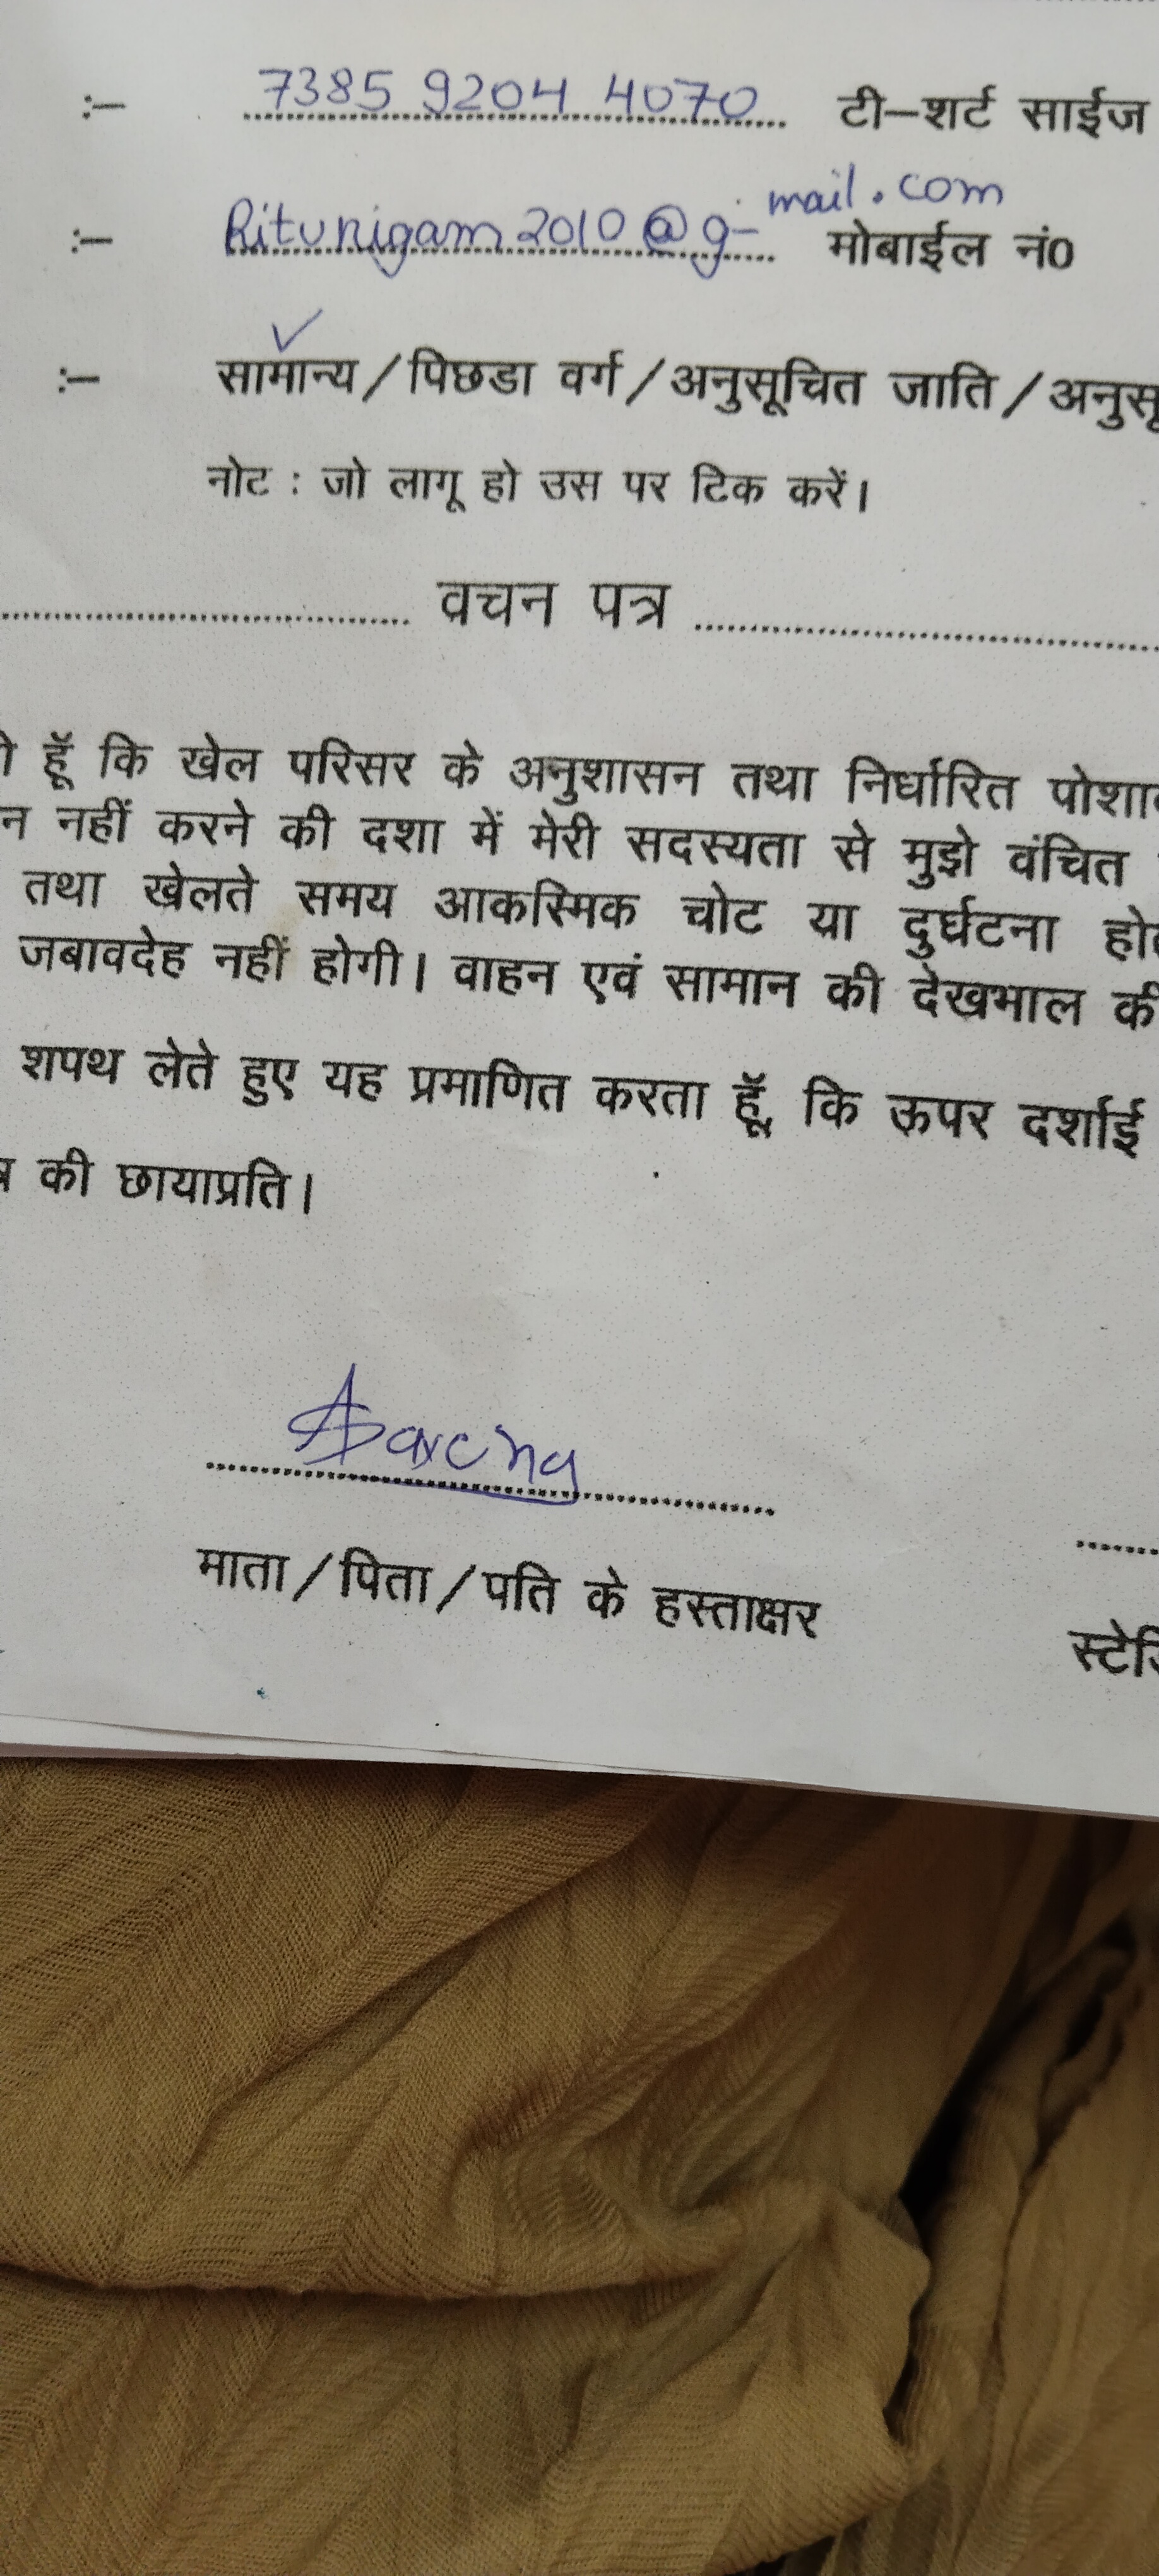 :– 7385 9204 4070 टी–शर्ट साईज
:– Ritunigam2010@g-mail.com मोबाईल नं0
:– सामान्य/पिछडा वर्ग/अनुसूचित जाति/अनुसू
नोट : जो लागू हो उस पर टिक करें।
वचन पत्र
हूँ कि खेल परिसर के अनुशासन तथा निर्धारित पोशा
न नहीं करने की दशा में मेरी सदस्यता से मुझे वंचित
तथा खेलते समय आकस्मिक चोट या दुर्घटना हो
जबावदेह नहीं होगी। वाहन एवं सामान की देखभाल की
शपथ लेते हुए यह प्रमाणित करता हूँ, कि ऊपर दर्शाई
की छायाप्रति।
माता/पिता/पति के हस्ताक्षर
स्टेडि